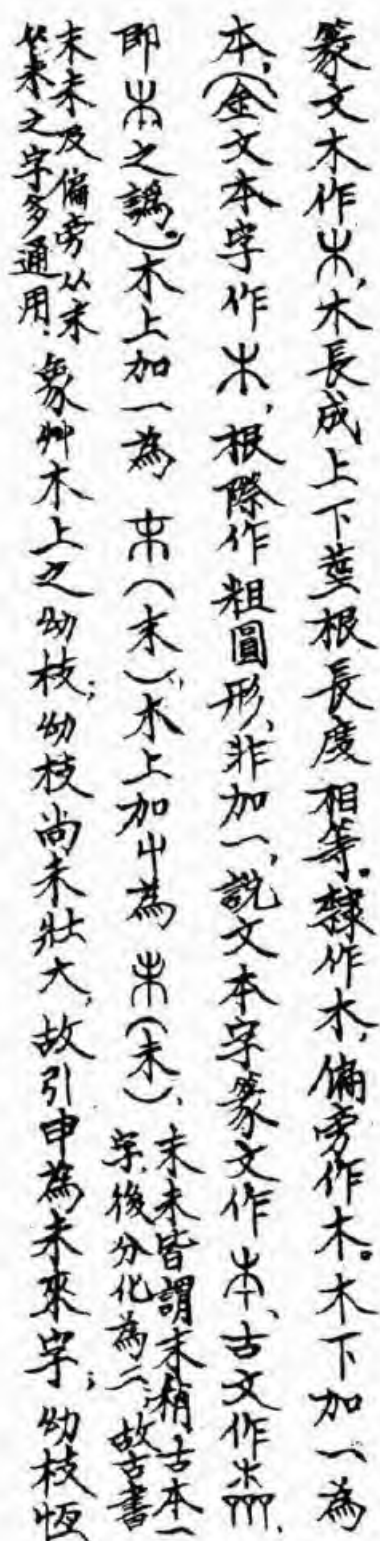 篆文木作,木長成上下莖根長度相等。隸作木,偏旁作木。木下加一為
本,(金文本字作,根際作粗圓形,非加一,說文本字篆文作,古文作,
即之譌。)木上加一為(末),木上加屮為(未)。末未皆謂末稍,古本一字,後分化為二,故古書
末未及偏旁从末从未之字多通用.象艸木上之幼枝;幼枝尚未壯大,故引申為未來字;幼枝恆